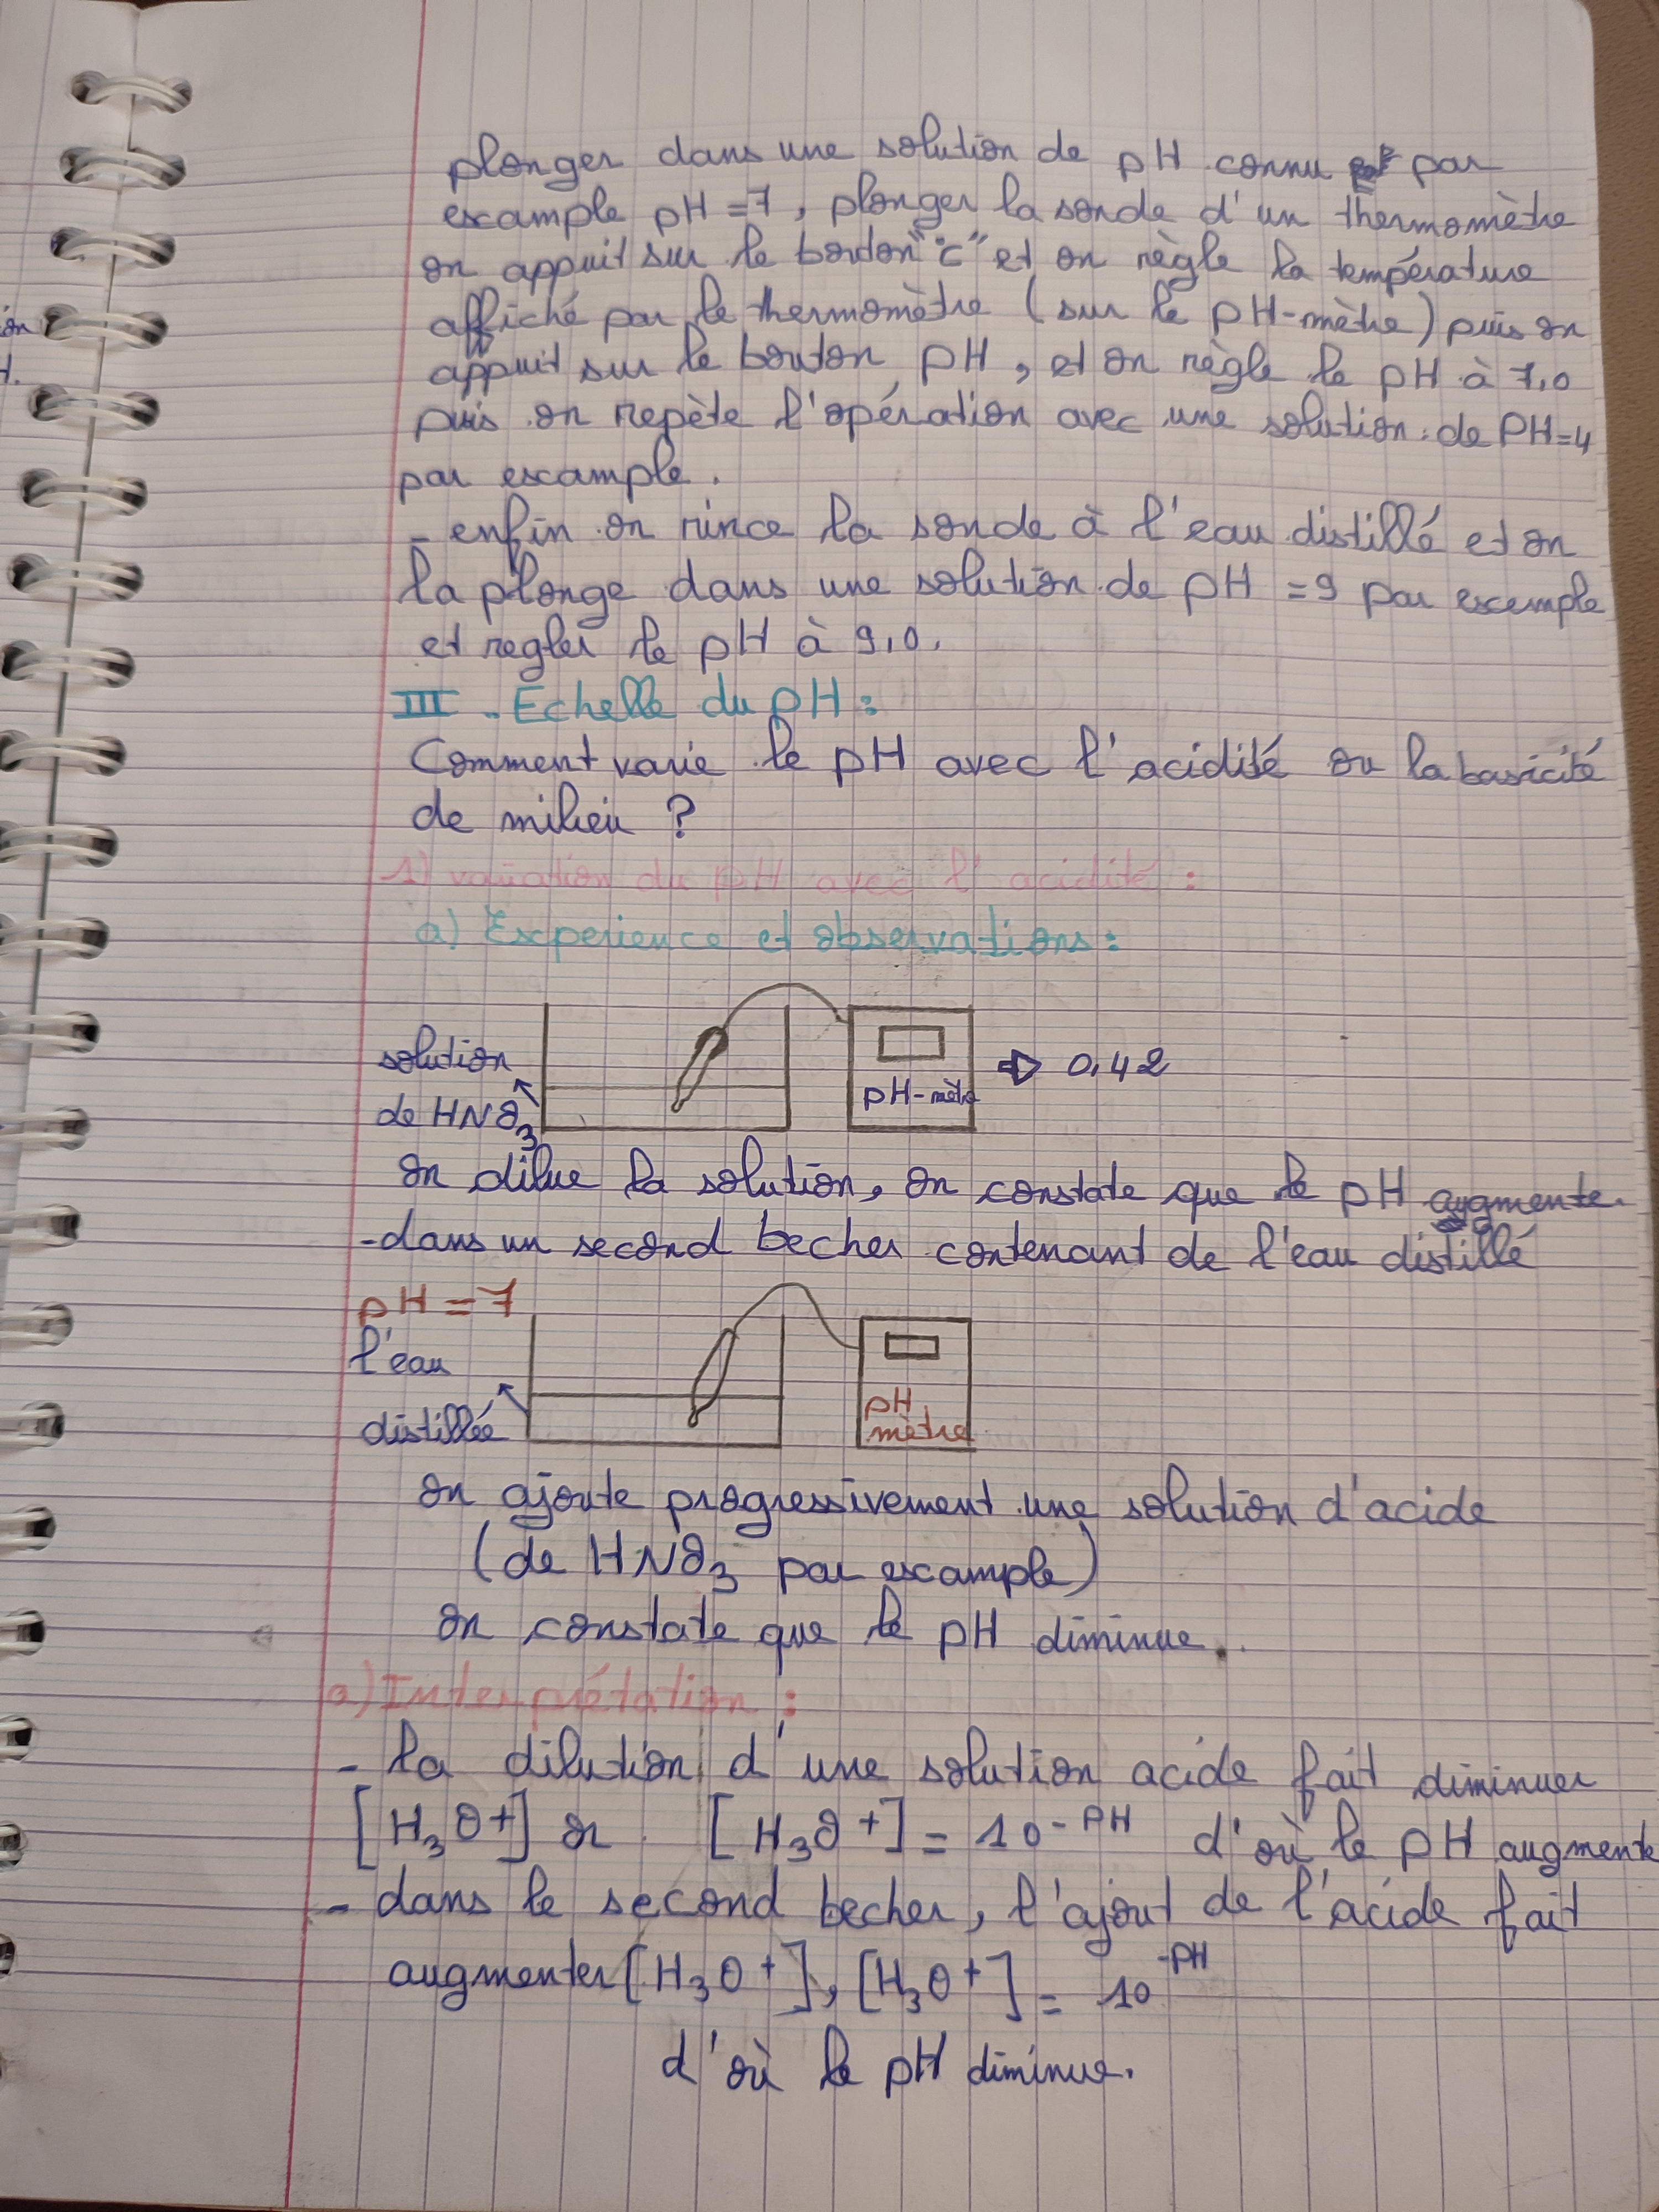 plonger dans une solution de pH connu par
escample pH = 7, plonger la sonde d'un thermomètre
on appuit sur le bordon "°c" et on règle la température
affiché par le thermomètre (sur le pH-mètre) puis on
appuit sur le bouton pH, et on règle le pH à 7,0
puis on repète l'opération avec une solution de PH=4
par escample.
- enfin on rince la sonde à l'eau distillé et on
la plonge dans une solution de pH = 9 par escemple
et regler le pH à 9,0.
III - Echelle du pH :
Comment varie le pH avec l'acidité ou la basicité
de milieu ?
1) variation du pH avec l'acidité :
a) Escperience et observations :
solution
de HNO3
pH-mètr
⇒ 0,42
on dilue la solution, on constate que le pH augmente.
- dans un second becher contenant de l'eau distillé
pH = 7
l'eau
distillée
pH
mètre
on ajoute progressivement une solution d'acide
(de HNO3 par escample)
on constate que le pH diminue.
a) Interprétation :
- la dilution d'une solution acide fait diminuer
[H3O+] or [H3O+] = 10^-PH d'où le pH augmente
- dans le second becher, l'ajout de l'acide fait
augmenter [H3O+], [H3O+] = 10^-PH
d'où le pH diminue.